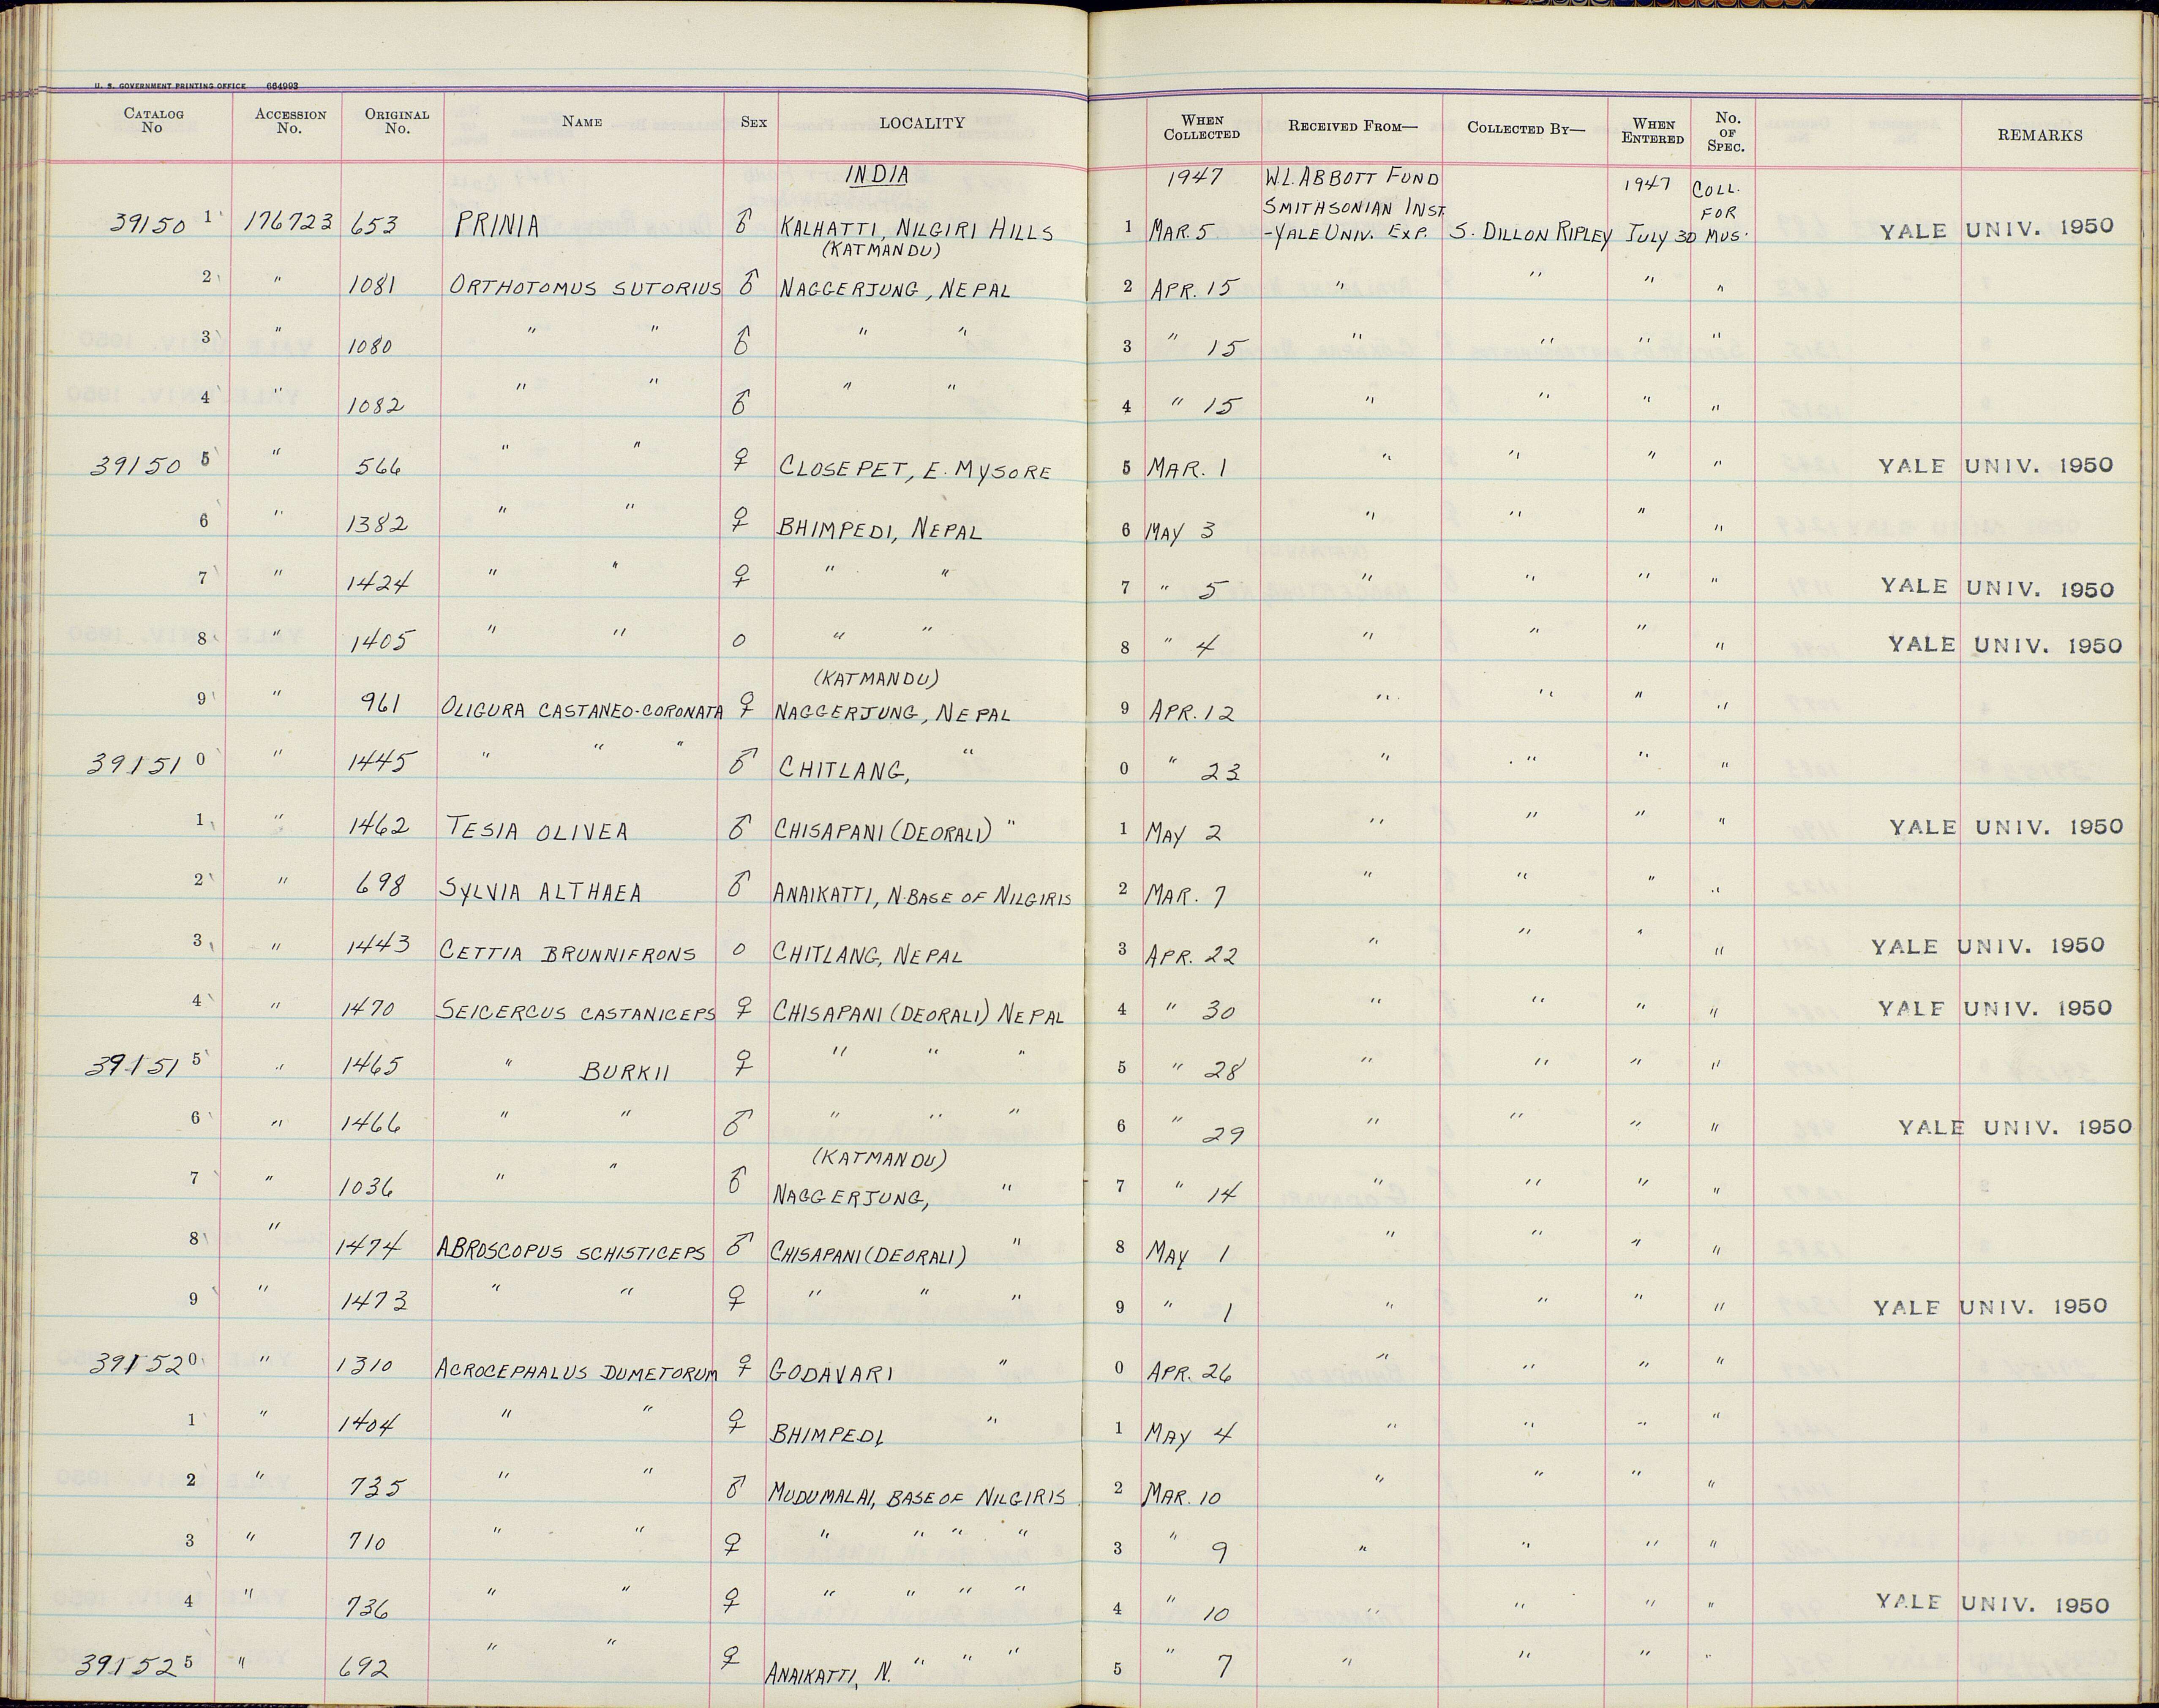 U. S. GOVERNMENT PRINTING OFFICE 664993
CATALOG No ACCESSION No. ORIGINAL No. NAME SEX LOCALITY WHEN COLLECTED RECEIVED FROM— COLLECTED BY— WHEN ENTERED No. OF SPEC. REMARKS
INDIA 1947 W.L. ABBOTT FUND 1947 COLL.
SMITHSONIAN INST. FOR
39150 1 176723 653 PRINIA ♂ KALHATTI, NILGIRI HILLS 1 MAR. 5 -YALE UNIV. EXP. S. DILLON RIPLEY JULY 30 MUS. YALE UNIV. 1950
(KATMANDU)
2 " 1081 ORTHOTOMUS SUTORIUS ♂ NAGGERJUNG, NEPAL 2 APR. 15 " " " "
3 " 1080 " " ♂ " " 3 " 15 " " " "
4 " 1082 " " ♂ " " 4 " 15 " " " "
39150 5 " 566 " " ♀ CLOSEPET, E. MYSORE 5 MAR. 1 " " " " YALE UNIV. 1950
6 " 1382 " " ♀ BHIMPEDI, NEPAL 6 MAY 3 " " " "
7 " 1424 " " ♀ " " 7 " 5 " " " " YALE UNIV. 1950
8 " 1405 " " O " " 8 " 4 " " " " YALE UNIV. 1950
(KATMANDU)
9 " 961 OLIGURA CASTANEO-CORONATA ♀ NAGGERJUNG, NEPAL 9 APR. 12 " " " "
39151 0 " 1445 " " " ♂ CHITLANG, " 0 " 23 " " " "
1 " 1462 TESIA OLIVEA ♂ CHISAPANI (DEORALI) " 1 MAY 2 " " " " YALE UNIV. 1950
2 " 698 SYLVIA ALTHAEA ♂ ANAIKATTI, N. BASE OF NILGIRIS 2 MAR. 7 " " " "
3 " 1443 CETTIA BRUNNIFRONS O CHITLANG, NEPAL 3 APR. 22 " " " " YALE UNIV. 1950
4 " 1470 SEICERCUS CASTANICEPS ♀ CHISAPANI (DEORALI) NEPAL 4 " 30 " " " " YALE UNIV. 1950
39151 5 " 1465 " BURKII ♀ " " " 5 " 28 " " " "
6 " 1466 " " ♂ " " " 6 " 29 " " " " YALE UNIV. 1950
(KATMANDU)
7 " 1036 " " ♂ NAGGERJUNG, " 7 " 14 " " " "
8 " 1474 ABROSCOPUS SCHISTICEPS ♂ CHISAPANI (DEORALI) " 8 MAY 1 " " " "
9 " 1473 " " ♀ " " " 9 " 1 " " " " YALE UNIV. 1950
39152 0 " 1310 ACROCEPHALUS DUMETORUM ♀ GODAVARI " 0 APR. 26 " " " "
1 " 1404 " " ♀ BHIMPEDI, " 1 MAY 4 " " " "
2 " 735 " " ♂ MUDUMALAI, BASE OF NILGIRIS 2 MAR. 10 " " " "
3 " 710 " " ♀ " " " " 3 " 9 " " " "
4 " 736 " " ♀ " " " " 4 " 10 " " " " YALE UNIV. 1950
39152 5 " 692 " " ♀ ANAIKATTI, N. " " " 5 " 7 " " " "